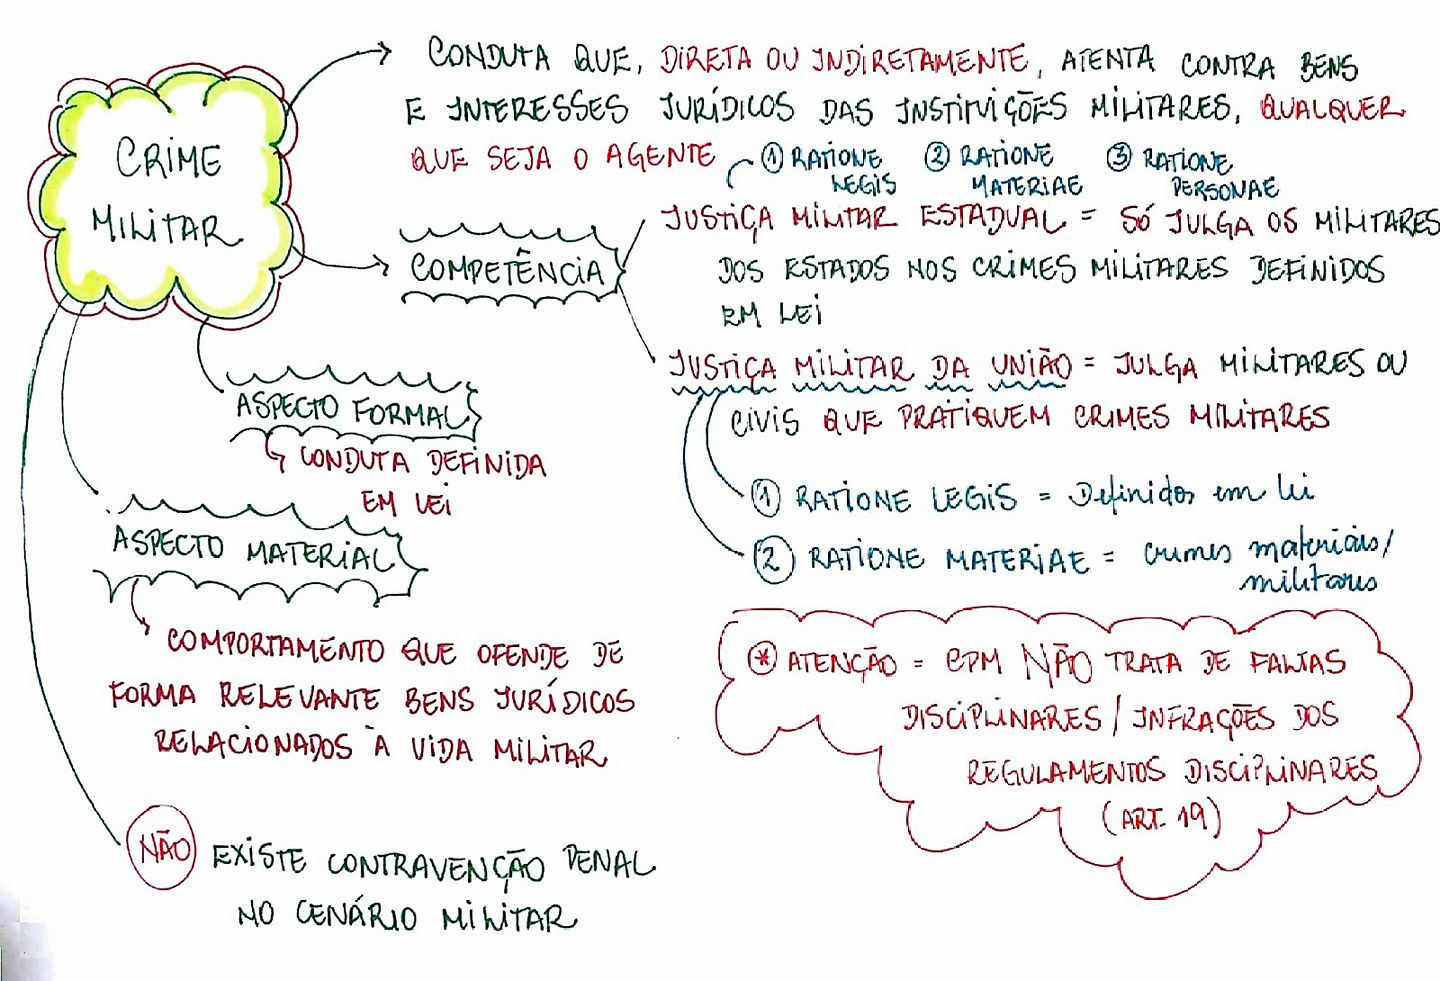 CRIME
MILITAR
CONDUTA QUE, DIRETA OU INDIRETAMENTE, ATENTA CONTRA BENS
E INTERESSES JURÍDICOS DAS INSTITUIÇÕES MILITARES, QUALQUER
QUE SEJA O AGENTE
① RATIONE
LEGIS
② RATIONE
MATERIAE
③ RATIONE
PERSONAE
COMPETÊNCIA
JUSTIÇA MILITAR ESTADUAL = SÓ JULGA OS MILITARES
DOS ESTADOS NOS CRIMES MILITARES DEFINIDOS
EM LEI
JUSTIÇA MILITAR DA UNIÃO = JULGA MILITARES OU
CIVIS QUE PRATIQUEM CRIMES MILITARES
① RATIONE LEGIS = Definidos em lei
② RATIONE MATERIAE = crimes materiais/
militares
ASPECTO FORMAL
CONDUTA DEFINIDA
EM LEI
ASPECTO MATERIAL
COMPORTAMENTO QUE OFENDE DE
FORMA RELEVANTE BENS JURÍDICOS
RELACIONADOS À VIDA MILITAR
NÃO EXISTE CONTRAVENÇÃO PENAL
NO CENÁRIO MILITAR
* ATENÇÃO = CPM NÃO TRATA DE FALTAS
DISCIPLINARES / INFRAÇÕES DOS
REGULAMENTOS DISCIPLINARES
(ART. 19)